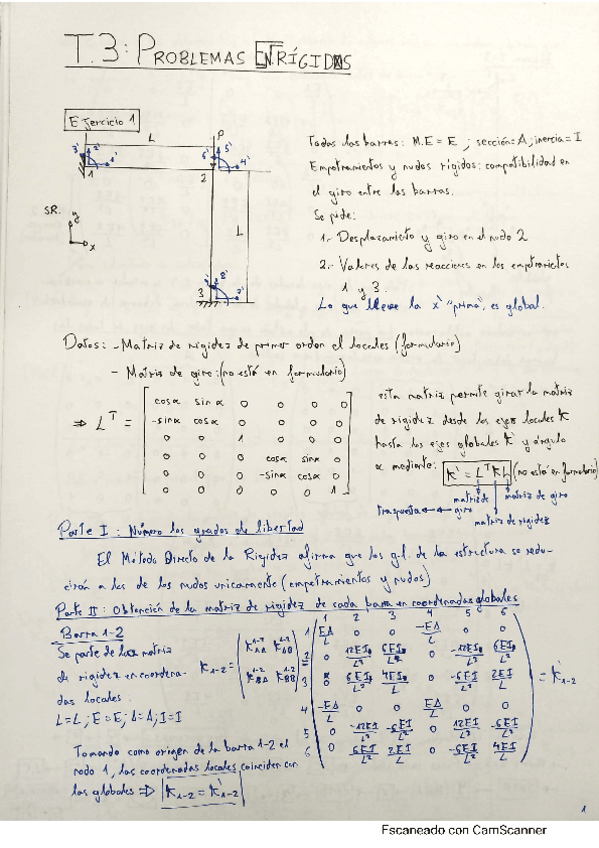 T.3: PROBLEMAS EN RÍGIDOS
Ejercicio 1
L
P
3'
2'
1'
1
6'
5'
4'
2
L
S.R.
y
x
3
9'
8'
7'
Todas las barras: M.E = E ; sección=A; inercia=I
Empotramientos y nudos rígidos: compatibilidad en
el giro entre las barras.
Se pide:
1.- Desplazamiento y giro en el nudo 2
2.- Valores de las reacciones en los empotramientos
1 y 3.
Lo que lleve la x' "prima", es global.
Datos: - Matriz de rigidez de primer orden el locales (formulario)
- Matriz de giro: (no está en formulario)
⇒ L^T =
cosα sinα 0 0 0 0
-sinα cosα 0 0 0 0
0 0 1 0 0 0
0 0 0 cosα sinα 0
0 0 0 -sinα cosα 0
0 0 0 0 0 1
esta matriz permite girar la matriz
de rigidez desde los ejes locales K
hasta los ejes globales K' y ángulo
α mediante: K' = L^T K L (no está en formulario)
matriz de giro
matriz de giro
traspuesta
matriz de rigidez
Parte I: Número los grados de libertad
El Método Directo de la Rigidez afirma que los g.l. de la estructura se redu-
cirán a los de los nudos unicamente (empotramientos y nudos)
Parte II: Obtención de la matriz de rigidez de cada barra en coordenadas globales
Barra 1-2
Se parte de la matriz
de rigidez en coordena-
das locales.
L=L; E=E; A=A; I=I
K1-2 =
K AA 1-2 K AB 1-2
K BA 1-2 K BB 1-2
1 2 3 4 5 6
1 EA/L 0 0 -EA/L 0 0
2 0 12EI/L³ 6EI/L² 0 -12EI/L³ 6EI/L²
3 0 6EI/L² 4EI/L 0 -6EI/L² 2EI/L
4 -EA/L 0 0 EA/L 0 0
5 0 -12EI/L³ -6EI/L² 0 12EI/L³ -6EI/L²
6 0 6EI/L² 2EI/L 0 -6EI/L² 4EI/L
= K'1-2
Tomando como origen de la barra 1-2 el
nodo 1, las coordenadas locales coinciden con
las globales ⇒ K1-2 = K'1-2
1
Escaneado con CamScanner